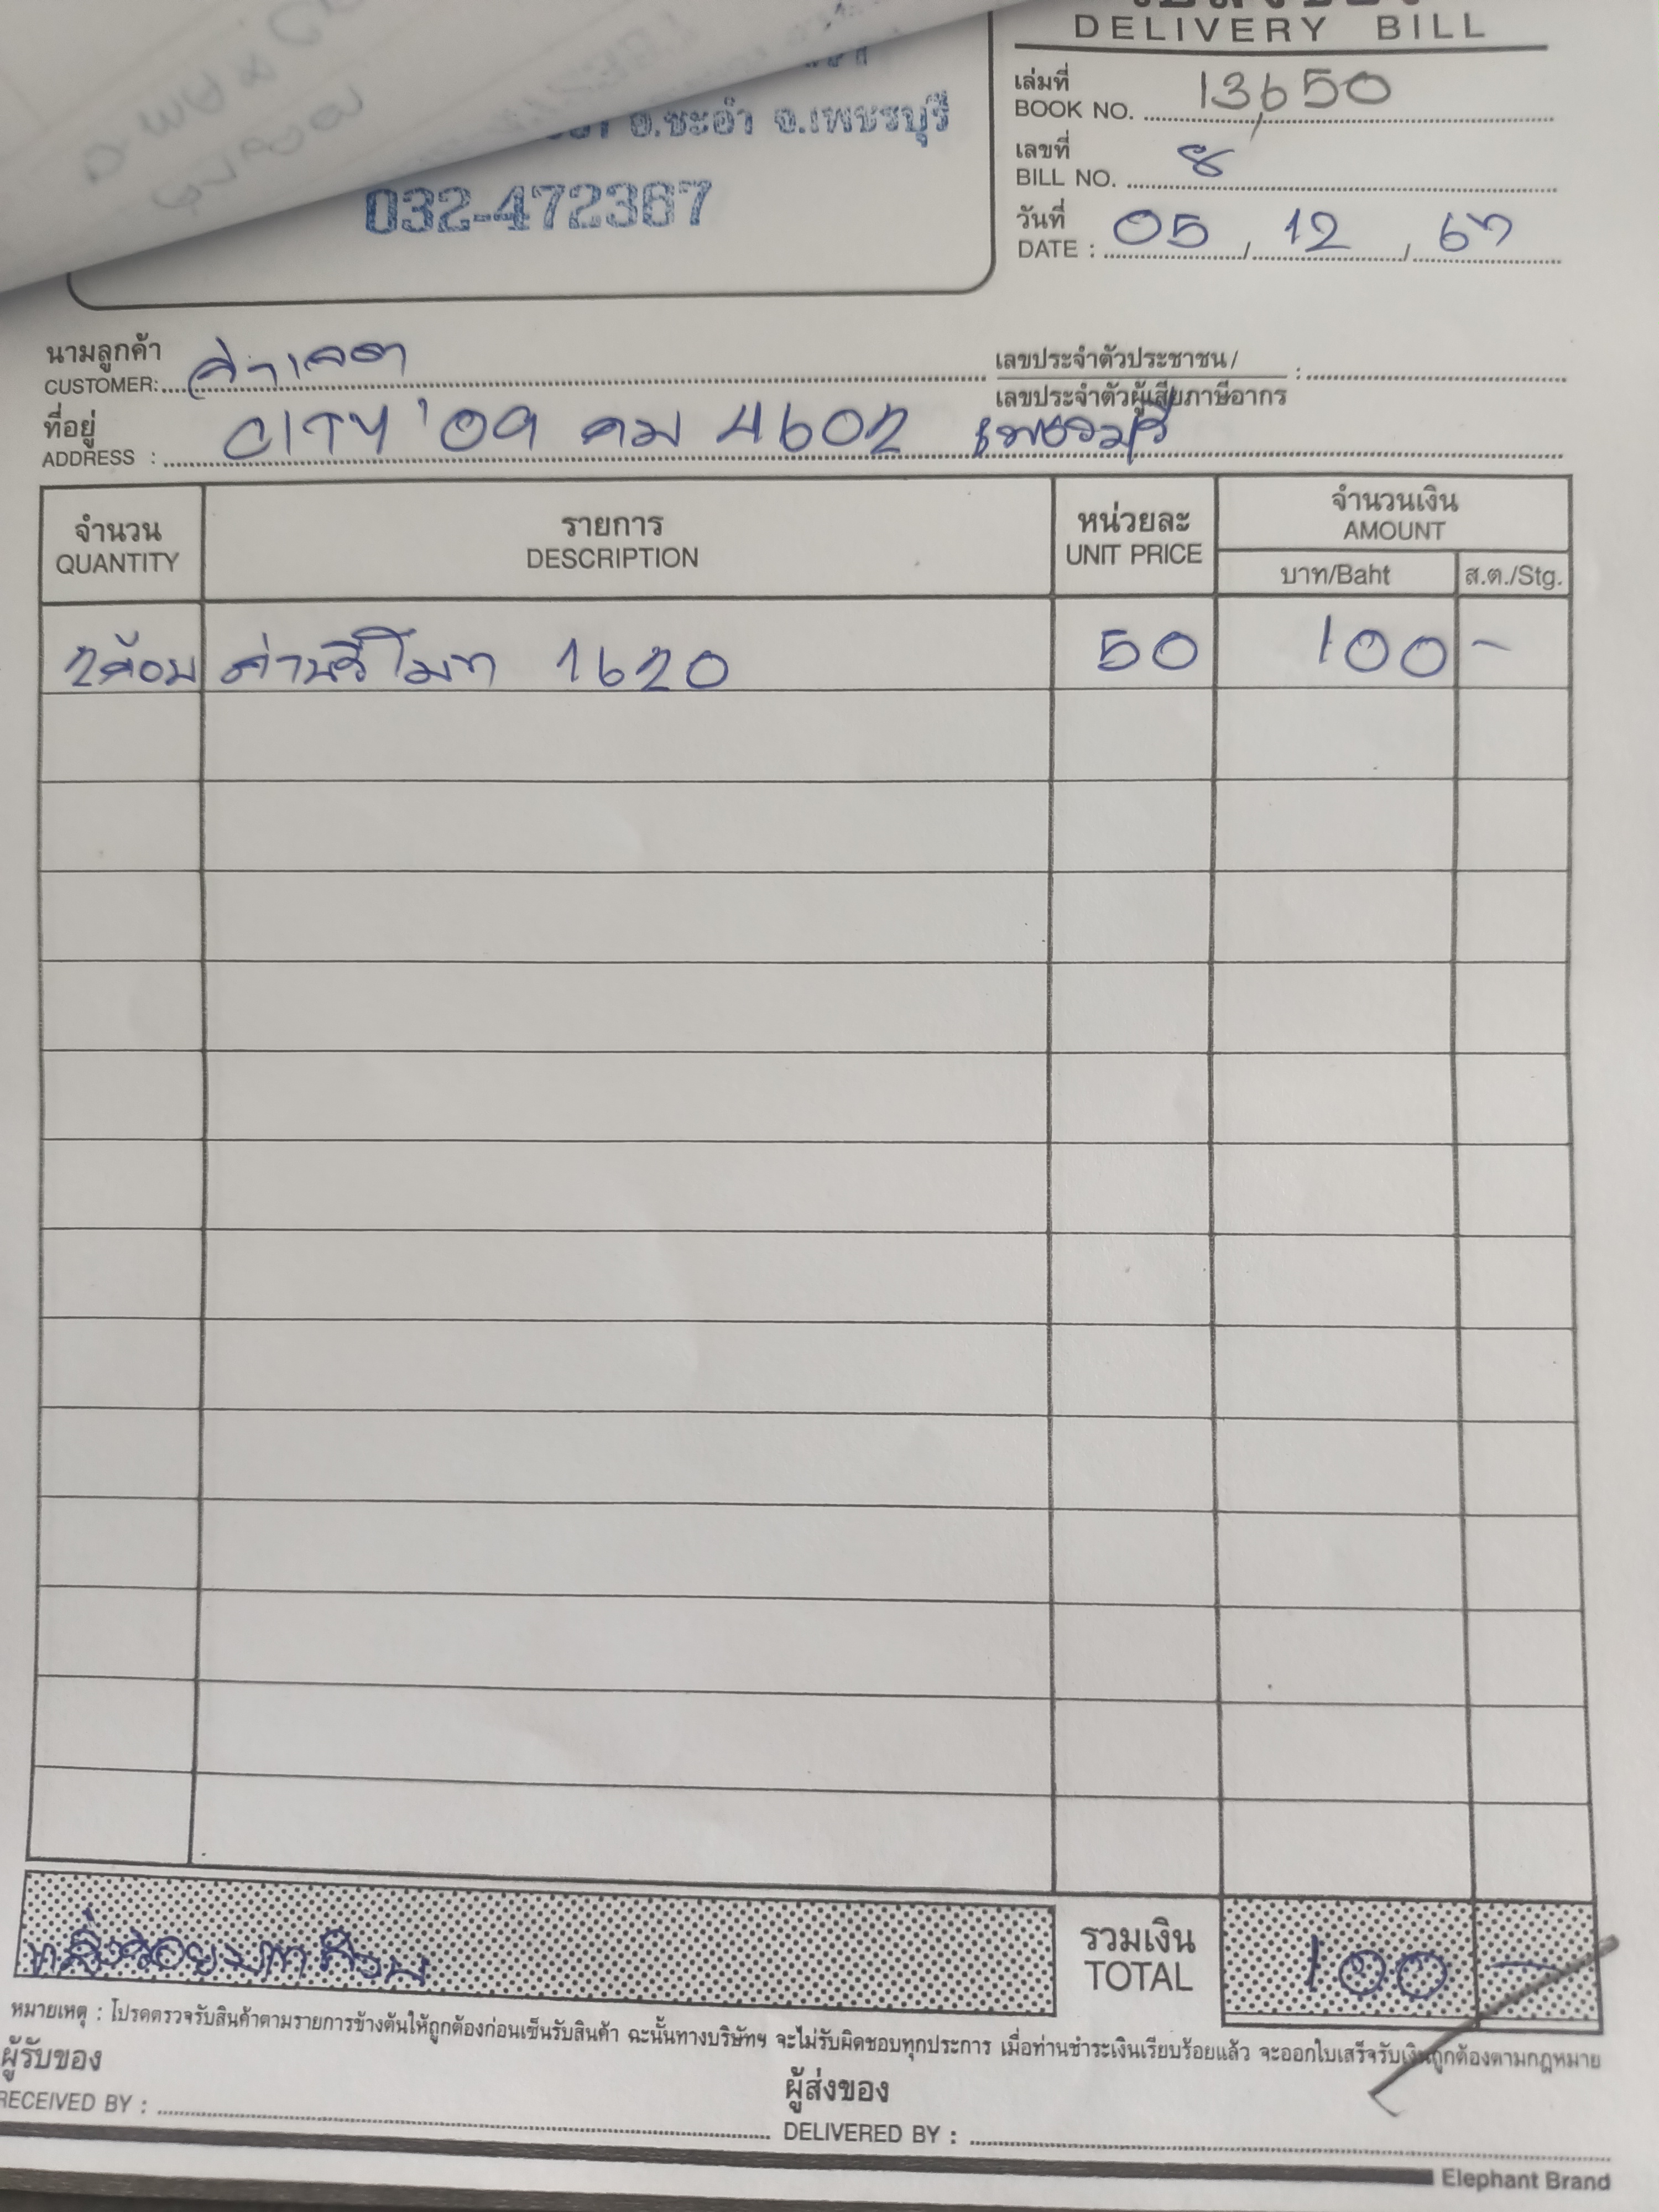 DELIVERY BILL
เล่มที่
BOOK NO. 13,650
เลขที่
BILL NO. 8
วันที่
DATE : 05 / 12 / 67
อ.ชะอำ จ.เพชรบุรี
032-472367
นามลูกค้า
CUSTOMER:
เลขประจำตัวประชาชน /
เลขประจำตัวผู้เสียภาษีอากร :
ที่อยู่
ADDRESS : CITY '09 คม 4602 เพชรบุรี
จำนวน
QUANTITY
รายการ
DESCRIPTION
หน่วยละ
UNIT PRICE
จำนวนเงิน
AMOUNT
บาท/Baht
ส.ต./Stg.
2ก้อน ถ่านรีโมท 1620 50 100 -
หนึ่งร้อยบาทถ้วน
รวมเงิน
TOTAL
100 -
หมายเหตุ : โปรดตรวจรับสินค้าตามรายการข้างต้นให้ถูกต้องก่อนเซ็นรับสินค้า ฉะนั้นทางบริษัทฯ จะไม่รับผิดชอบทุกประการ เมื่อท่านชำระเงินเรียบร้อยแล้ว จะออกใบเสร็จรับเงินถูกต้องตามกฎหมาย
ผู้รับของ
RECEIVED BY :
ผู้ส่งของ
DELIVERED BY :
Elephant Brand